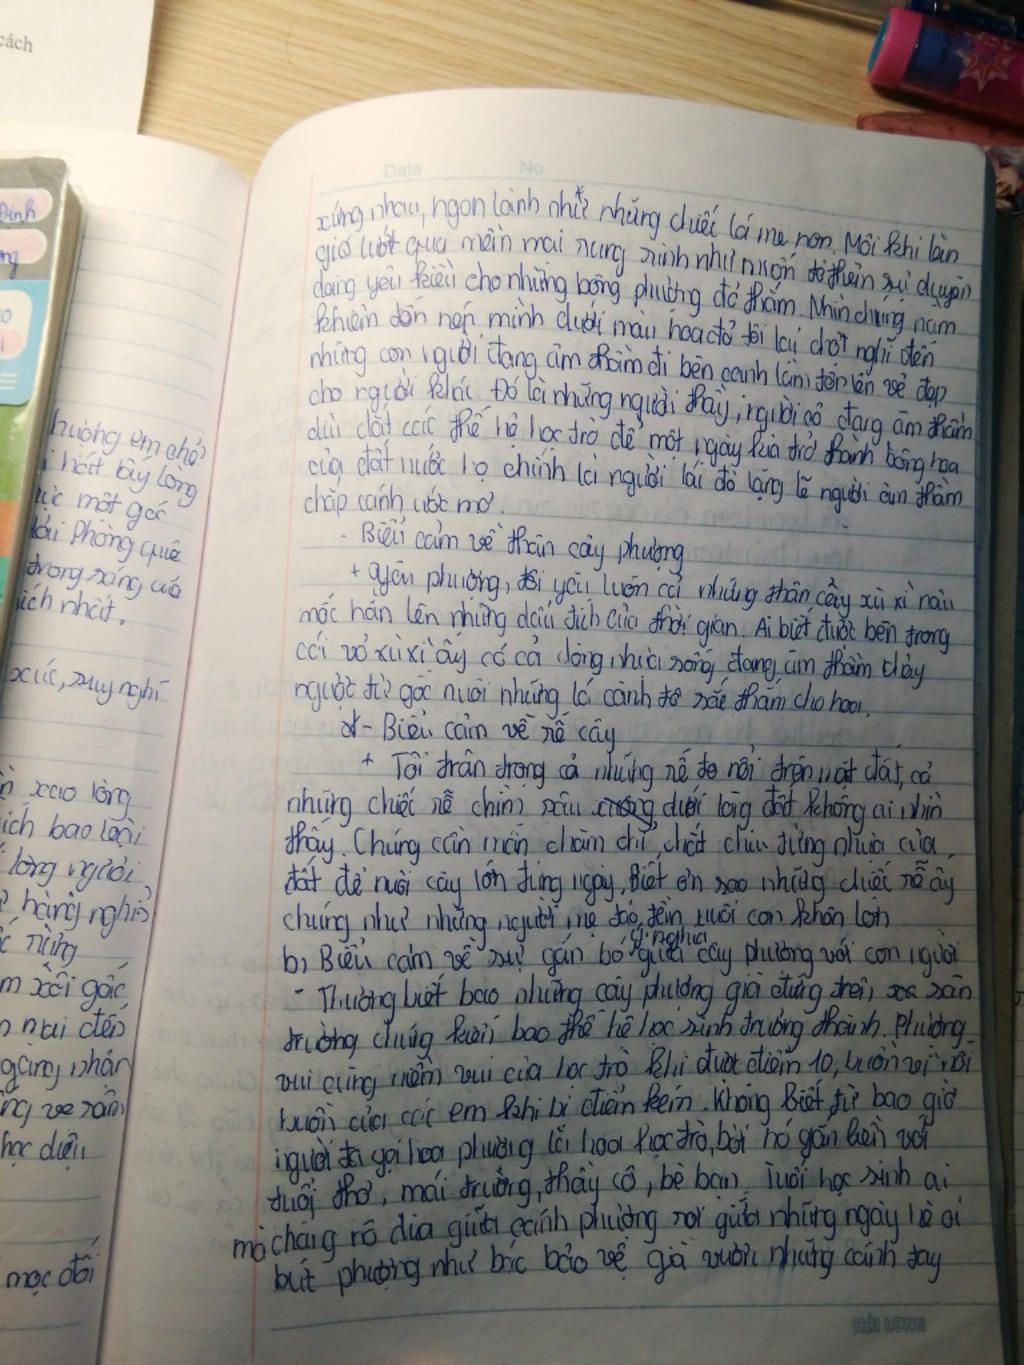 cách
Định
ng
Date No
hương em nhớ
hát bây lòng
ực một góc
Hải Phòng quê
trong sáng của
ích nhất.
xúc, suy nghĩ
xao lòng
ích bao loài
lòng người
hàng nghìn
từng
m xới gốc
mai đến
nhân
ng ve rân
học điệu
mọc đối
xứng nhau, ngon lành như những chiếc lá me non. Mỗi khi làn
gió lướt qua mềm mại rung rinh như muốn tô thêm sự duyên
dáng yêu kiều cho những bông phượng đỏ thắm. Nhìn chúng nam
khiêm tốn nép mình dưới màu hoa đỏ tôi lại chợt nghĩ đến
những con người đang âm thầm đi bên cạnh làm tôn lên vẻ đẹp
cho người khác. Đó là những người thầy, người cô đang âm thầm
dìu dắt các thế hệ học trò để một ngày kia trở thành bông hoa
của đất nước họ chính là người lái đò lặng lẽ người âm thầm
chắp cánh ước mơ.
- Biểu cảm về thân cây phượng
+ yêu phượng, tôi yêu luôn cả những thân cây xù xì nâu
mốc hằn lên những dấu tích của thời gian. Ai biết được bên trong
cái vỏ xù xì ấy có cả dòng nhựa sống đang âm thầm chảy
ngược từ gốc nuôi những lá cành tô sắc thắm cho hoa.
- Biểu cảm về rễ cây
+ Tôi trân trọng cả những rễ to nổi trên mặt đất, cả
những chiếc rễ chìm sâu dưới lòng đất không ai nhìn
thấy. Chúng cần mẫn chăm chỉ, chắt chiu từng nhựa của
đất để nuôi cây lớn từng ngày, Biết ơn sao những chiếc rễ ấy
chúng như những người mẹ tảo tần nuôi con khôn lớn
ý nghĩa
b) Biểu cảm về sự gắn bó giữa cây phượng với con người
- Thương biết bao những cây phượng già đứng trên sân
trường chứng kiến bao thế hệ học sinh trưởng thành. Phượng
vui cùng niềm vui của học trò khi được điểm 10, buồn với nỗi
buồn của các em khi bị điểm kém. Không Biết từ bao giờ
người ta gọi hoa phượng là hoa học trò, bởi nó gắn liền với
tuổi thơ, mái trường, thầy cô, bè bạn. Tuổi học sinh ai
mà chẳng nô đùa giữa cánh phượng rơi giữa những ngày hè oi
bức phượng như bác bảo vệ già vươn những cánh tay
HẢI LONG